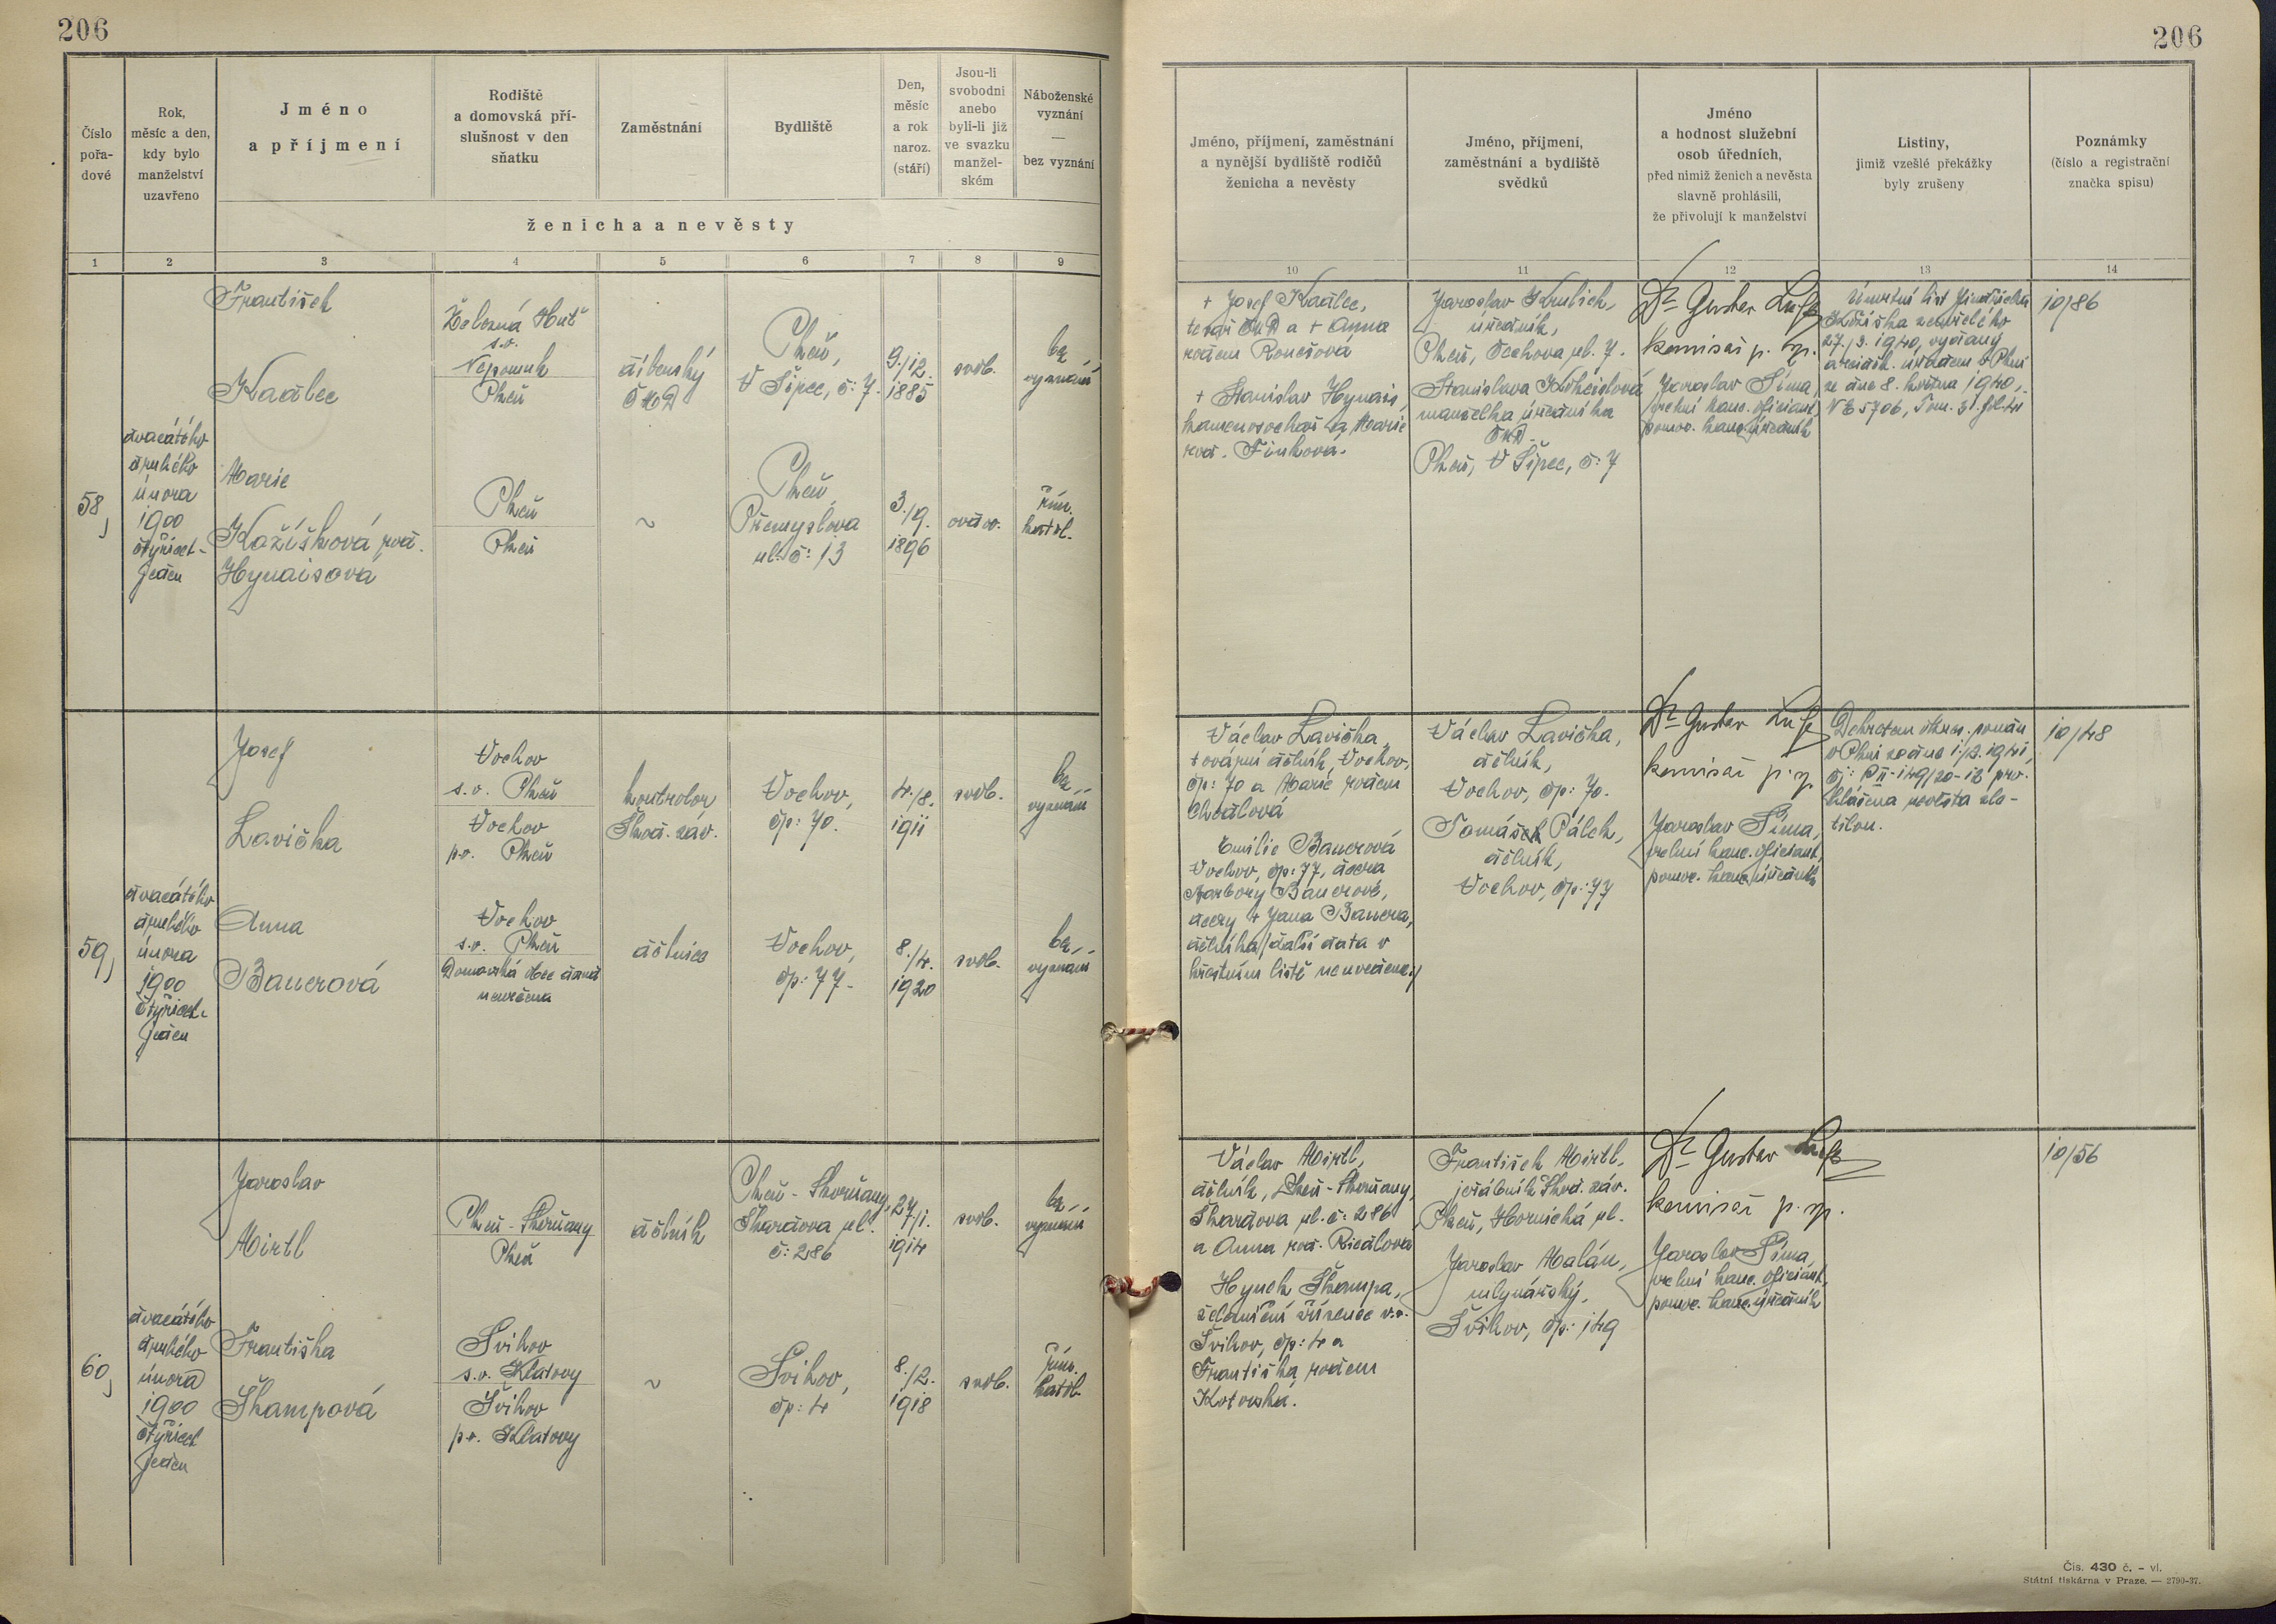 206
206
Číslo pořa- dové
Rok, měsíc a den, kdy bylo manželství uzavřeno
Jméno a příjmení
Rodiště a domovská pří- slušnost v den sňatku
Zaměstnání
Bydliště
Den, měsíc a rok naroz. (stáří)
Jsou-li svobodni anebo byli-li již ve svazku manžel- ském
Náboženské vyznání — bez vyznání
ženicha a nevěsty
1 2 3 4 5 6 7 8 9
Jméno, příjmení, zaměstnání a nynější bydliště rodičů ženicha a nevěsty
Jméno, příjmení, zaměstnání a bydliště svědků
Jméno a hodnost služební osob úředních, před nimiž ženich a nevěsta slavně prohlásili, že přivolují k manželství
Listiny, jimiž vzešlé překážky byly zrušeny
Poznámky (číslo a registrační značka spisu)
10 11 12 13 14
58,
dvacátého
druhého
února
1900
čtyřicet-
jeden
František
Kadlec
Marie
Kožíšková, roz.
Hynaisová
Železná Huť
s.o.
Nepomuk
Plzeň
Plzeň
Plzeň
dílenský
ČMD
~
Plzeň,
V Šipce, č: 7.
Plzeň
Přemyslova
ul. č: 13
9./12.
1885
3./9.
1896
svob.
ovdov.
bez
vyznání
řím.
katol.
+ Josef Kadlec,
a + Anna
rodem
+ Stanislav Hynais,
kamenosochař a Marie
roz. Finková.
Jaroslav
úředník,
Plzeň, Čechova ul. 7.
Stanislava
manželka úředníka
ČMD
Plzeň, V Šipce, č: 7
Dr Gustav
komisař p. m.
Jaroslav Šíma,
vrchní kanc. oficiant,
pomoc. kanc. úředník
Úmrtní list Jindřicha
Kožíška zemřelého
27./3. 1940, vydaný
arciděk. úřadem v Plzni
ze dne 8. května 1940,
NE 5706, Tom. 31. fol. 41
10/86
59,
dvacátého
druhého
února
1900
čtyřicet-
jeden
Josef
Lavička
Anna
Bauerová
Vochov
s.o. Plzeň
Vochov
p.o. Plzeň
Vochov
s.o. Plzeň
Domovská obec dosud
neurčena
kontrolor
Škod. záv.
dělnice
Vochov,
čp: 70.
Vochov,
čp: 77.
4./8.
1911
8./4.
1920
svob.
svob.
bez
vyznání
bez
vyznání
Václav Lavička,
tovární dělník, Vochov,
čp: 70 a Marie rodem
Chválová
Emilie Bauerová
Vochov, čp: 77, dcera
Barbory Bauerové,
dcery + Jana Bauera,
dělníka /další data v
křestním listě neuvedena./
Václav Lavička,
dělník,
Vochov, čp: 70.
Tomášek Pálek,
dělník,
Vochov, čp: 77
Dr Gustav
komisař p. m.
Jaroslav Šíma,
vrchní kanc. oficiant,
pomoc. kanc. úředník
Dekretem okres. soudu
v Plzni ze dne 1./2. 1941,
čj: P II-149/20-18 pro-
hlášena nevěsta zle-
tilou.
10/48
60,
dvacátého
druhého
února
1900
čtyřicet
jeden
Jaroslav
Mirtl
Františka
Škampová
Plzeň - Skvrňany
Plzeň
Švihov
s.o. Klatovy
Švihov
p.o. Klatovy
dělník
~
Plzeň - Skvrňany,
Škardova ul.
č: 286
Švihov,
čp: 4
27./1.
1914
8./2.
1918
svob.
svob.
bez
vyznání
řím.
katol.
Václav Mirtl,
dělník, Plzeň - Skvrňany,
Škardova ul. č: 286
a Anna roz.
Hynek Škampa,
železniční zřízenec v.v.
Švihov, čp: 4 a
Františka rodem
Kotorská.
František Mirtl,
jeřábník Škod. záv.
Plzeň, Hornická ul.
Jaroslav Malán,
mlynářský,
Švihov, čp: 149
Dr Gustav
komisař p. m.
Jaroslav Šíma,
vrchní kanc. oficiant,
pomoc. kanc. úředník
10/56
Čís. 430 č. - vl.
Státní tiskárna v Praze. — 2790-37.